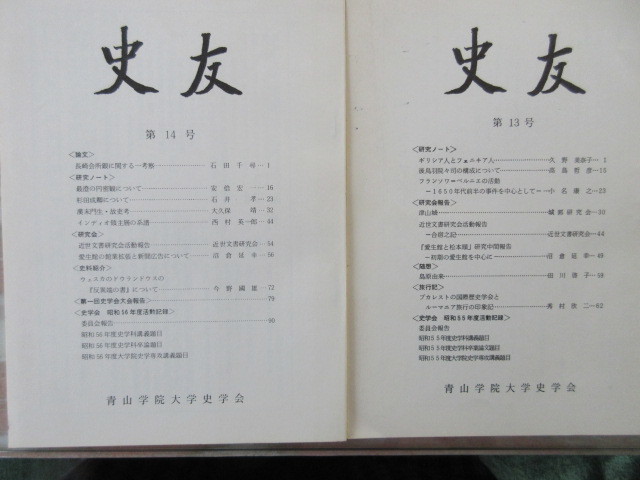 史友
第14号
<論文>
長崎会所銀に関する一考察 石田千尋…1
<研究ノート>
最澄の円密観について 宏…16
和田成卿について 石井孝…23
漢末門生・故吏考 大久保靖…32
インディオ領主層の系譜 西村英一郎…44
<研究会>
近世文書研究会活動報告 近世文書研究会…54
愛生館の種業拡張と新聞広告について 沼倉延幸…56
<史料紹介>
ウェスカのドゥランテウスの
『反異端の書』について 今野國雄…72
<第一回史学会大会報告> 79
<史学会 昭和56年度活動記録>
委員会報告 90
昭和56年度史学科講義題目
昭和56年度史学科卒論題目
昭和56年度大学院史学専攻講義題目
青山学院大学史学会
史友
第13号
<研究ノート>
ギリシア人とフェニキア人 久野美奈子…1
後鳥羽院々司の構成について 高島哲彦…15
フランソワ=ベルニエの活動
―1650年代前半の事件を中心として― 小名康之…23
<研究会報告>
津山城 城郭研究会…30
近世文書研究会活動報告
―合宿之記― 近世文書研究会…44
『愛生館と松本順』研究中間報告
―初期の愛生館を中心に― 沼倉延幸…48
<随想>
島原由来 田川路子…48
<旅行記>
ブカレストの国際歴史学会と
ルーマニア旅行の印象記 秀村欣二…62
<史学会 昭和55年度活動記録>
委員会報告
昭和55年度史学科講義題目
昭和55年度史学科卒業論文題目
昭和55年度大学院史学専攻講義題目
青山学院大学史学会